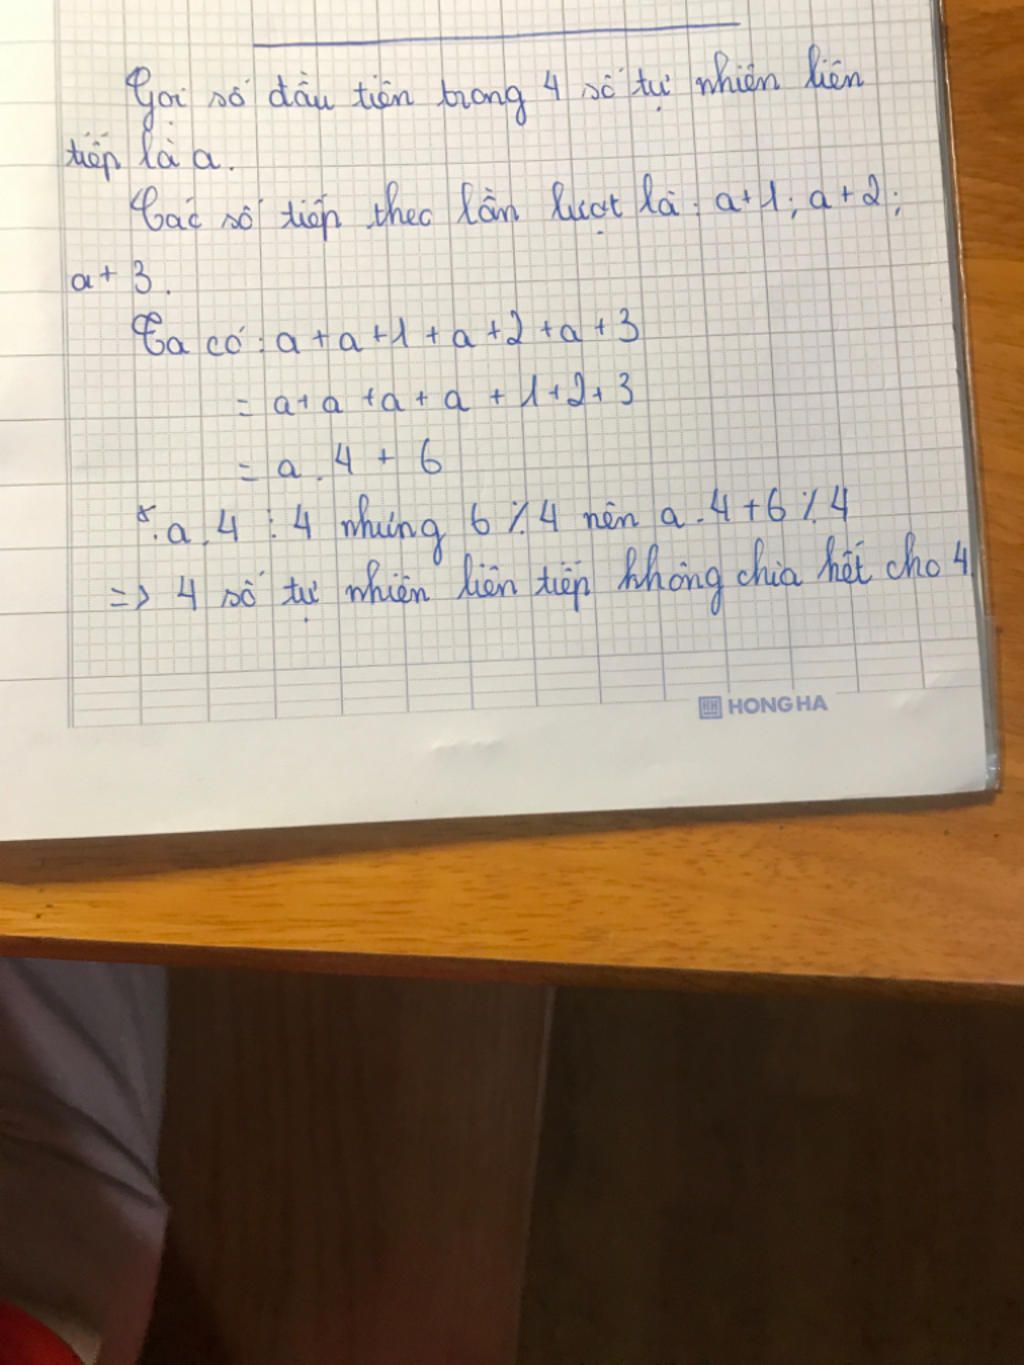 Gọi số đầu tiên trong 4 số tự nhiên liên
tiếp là a.
Các số tiếp theo lần lượt là: a+1; a+2;
a+3.
Ta có: a+a+1+a+2+a+3
= a+a+a+a+1+2+3
= a.4+6
Vì a.4 ⋮ 4 nhưng 6 ⋮̸ 4 nên a.4+6 ⋮̸ 4
=> 4 số tự nhiên liên tiếp không chia hết cho 4
HH HONG HA